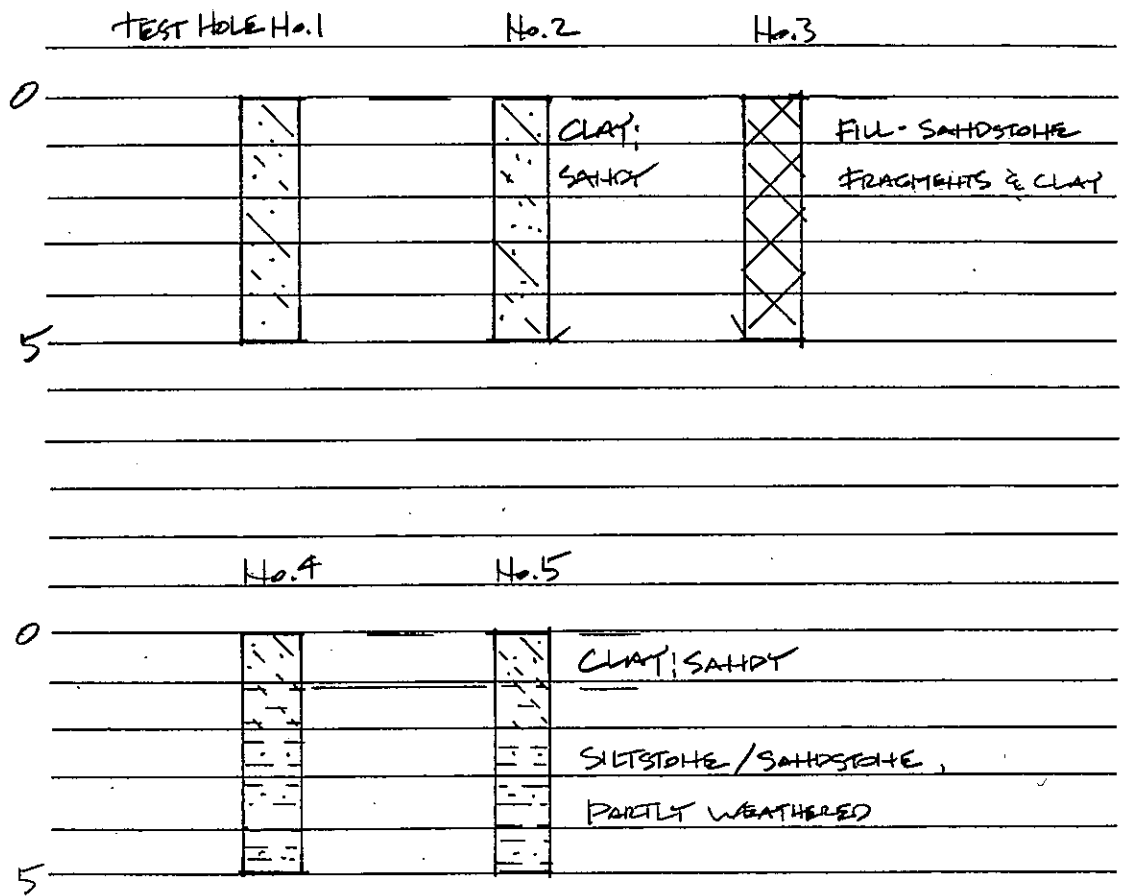 TEST HOLE No.1 No.2 No.3
0
CLAY; FILL - SANDSTONE
SANDY FRAGMENTS & CLAY
5
No.4 No.5
0
CLAY; SANDY
SILTSTONE / SANDSTONE,
PARTLY WEATHERED
5